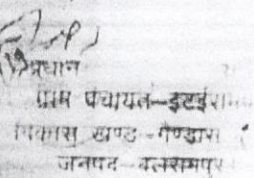 प्रधान
ग्राम पंचायत-इटईराम
विकास खण्ड-गैण्डास
जनपद-बलरामपुर